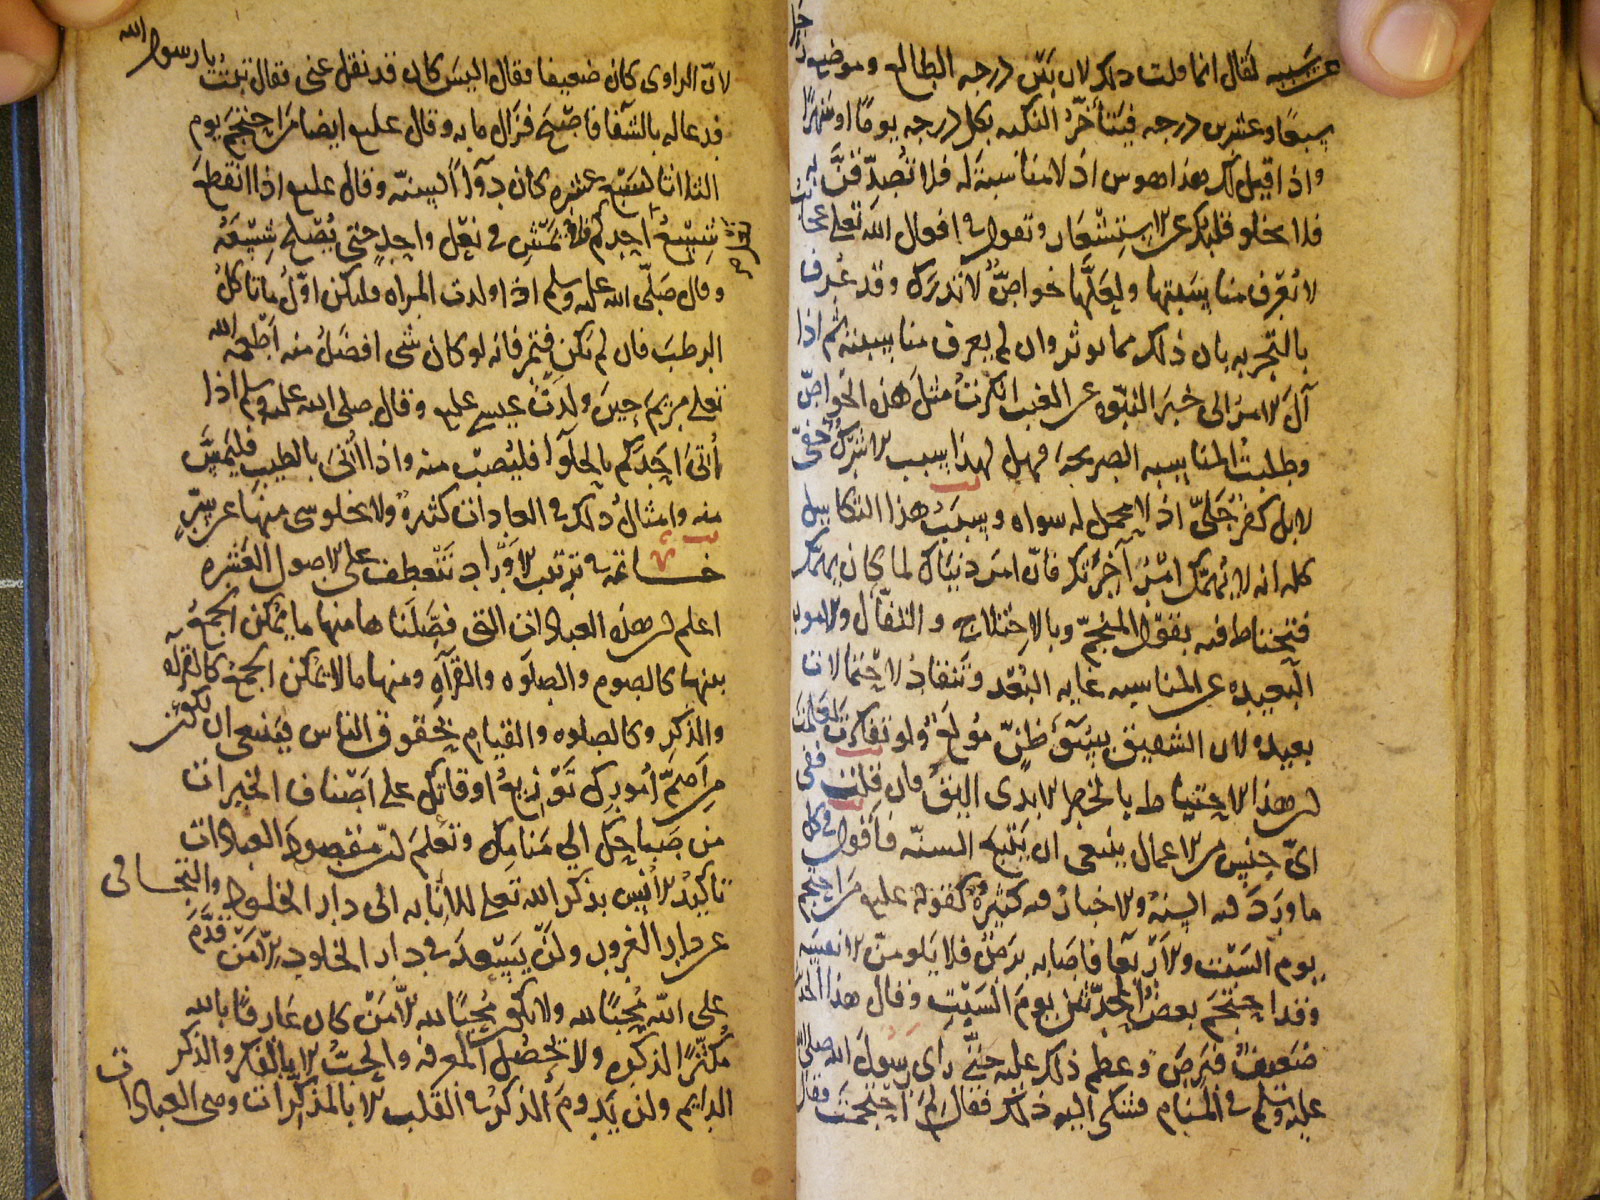 عن سببه لقال انما قلت ذلك لان بين درجه الطالع وموضع زحل
سبعا وعشرين درجه فيتأخر النكبه بكل درجه يوما او شهرا
واذا قيل لك هذا هوس اذ لا مناسبة له فلا تصدقن به
فلا يخلو قلبك عن الاستشعار وتقول في افعال الله تعلى عجائب
لا تعرف مناسبتها ولعلها خواص لا تدرك وقد عرف
بالتجربه بان ذلك مما يوثر وان لم يعرف مناسبته ثم اذا
آل الامر الى خبر النبوه عن الغيب انكرت مثل هذه الخواص
وطلبت المناسبه الصريحه فهل لهذا سبب الا شرك خفى
لا بل كفر جلى اذ لا محمل له سواه وسبب هذا التكاسل
كله انه لا يهمك امر آخرتك فان امر دنياك لما كان يهمك
فتحتاط فيه بقول المنجم وبالاختلاج والتفأل والامور
البعيده عن المناسبه غايه البعد وتنقاد لاحتمالات
بعيده لان الشفيق بسوء ظن مولع ولو تفكرت لعلمت
ان هذا الاحتياط بالخطر الابدى اليق فان قلت ففى
اى جنس من الاعمال ينبغى ان يتبع السنه فاقول فى كل
ما ورد فيه السنه والاخبار فيه كثيره كقوله عليه من احتجم
يوم السبت والاربعا فاصابه برص فلا يلومن الا نفسه
وقد احتجم بعض المحدثين يوم السبت وقال هذا الحديث
ضعيف فبرص وعظم ذلك عليه حتى راى رسول الله صلى الله
عليه وسلم فى المنام فشكى اليه ذلك فقال لم احتجمت فقال
لان الراوى كان ضعيفا فقال اليس كان قد نقل عنى فقال تبت يا رسول الله
فدعا له بالشفا فاصبح فزال ما به وقال عليه ايضا من احتجم يوم
الثلاثا لسبع عشره كان دوآ السنه وقال عليه اذا انقطع
شسع احدكم فلا يمش فى نعل واحد حتى يصلح شسعه
وقال صلى الله عليه وسلم اذا ولدت المراه فليكن اول ما تاكل
الرطب فان لم يكن فتمر فانه لو كان شى افضل منه اطعمه الله
تعلى مريم حين ولدت عيسى عليه وقال صلى الله عليه وسلم اذا
أتى احدكم بالحلوا فليصب منه واذا أتى بالطيب فليمس
منه وامثال ذلك فى العادات كثيره ولا يخلو شى منها عن سر
خاتمه فى ترتيب الاوراد تنعطف على الاصول العشره
اعلم ان هذه العبادات التى فصلناها منها ما يمكن الجمع
بينها كالصوم والصلوه والقرآه ومنها ما لا يمكن الجمع كالقرآه
والذكر وكالصلوه والقيام بحقوق الناس فينبغى ان يكون
من اهم أمورك توزيع اوقاتك على اصناف الخيرات
من صباحك الى منامك وتعلم ان مقصود العبادات
تاكيد الانس بذكر الله تعلى للانابه الى دار الخلود والتجافى
عن دار الغرور ولن يسعد فى دار الخلود الا من قدم
على الله محبا لله ولا يكون محبا لله الا من كان عارفا بالله
مكثرا لذكره ولا يحصل المعرفه والحب الا بالفكر والذكر
الدايم ولن يدوم الذكر فى القلب الا بالمذكرات وهى العبادات